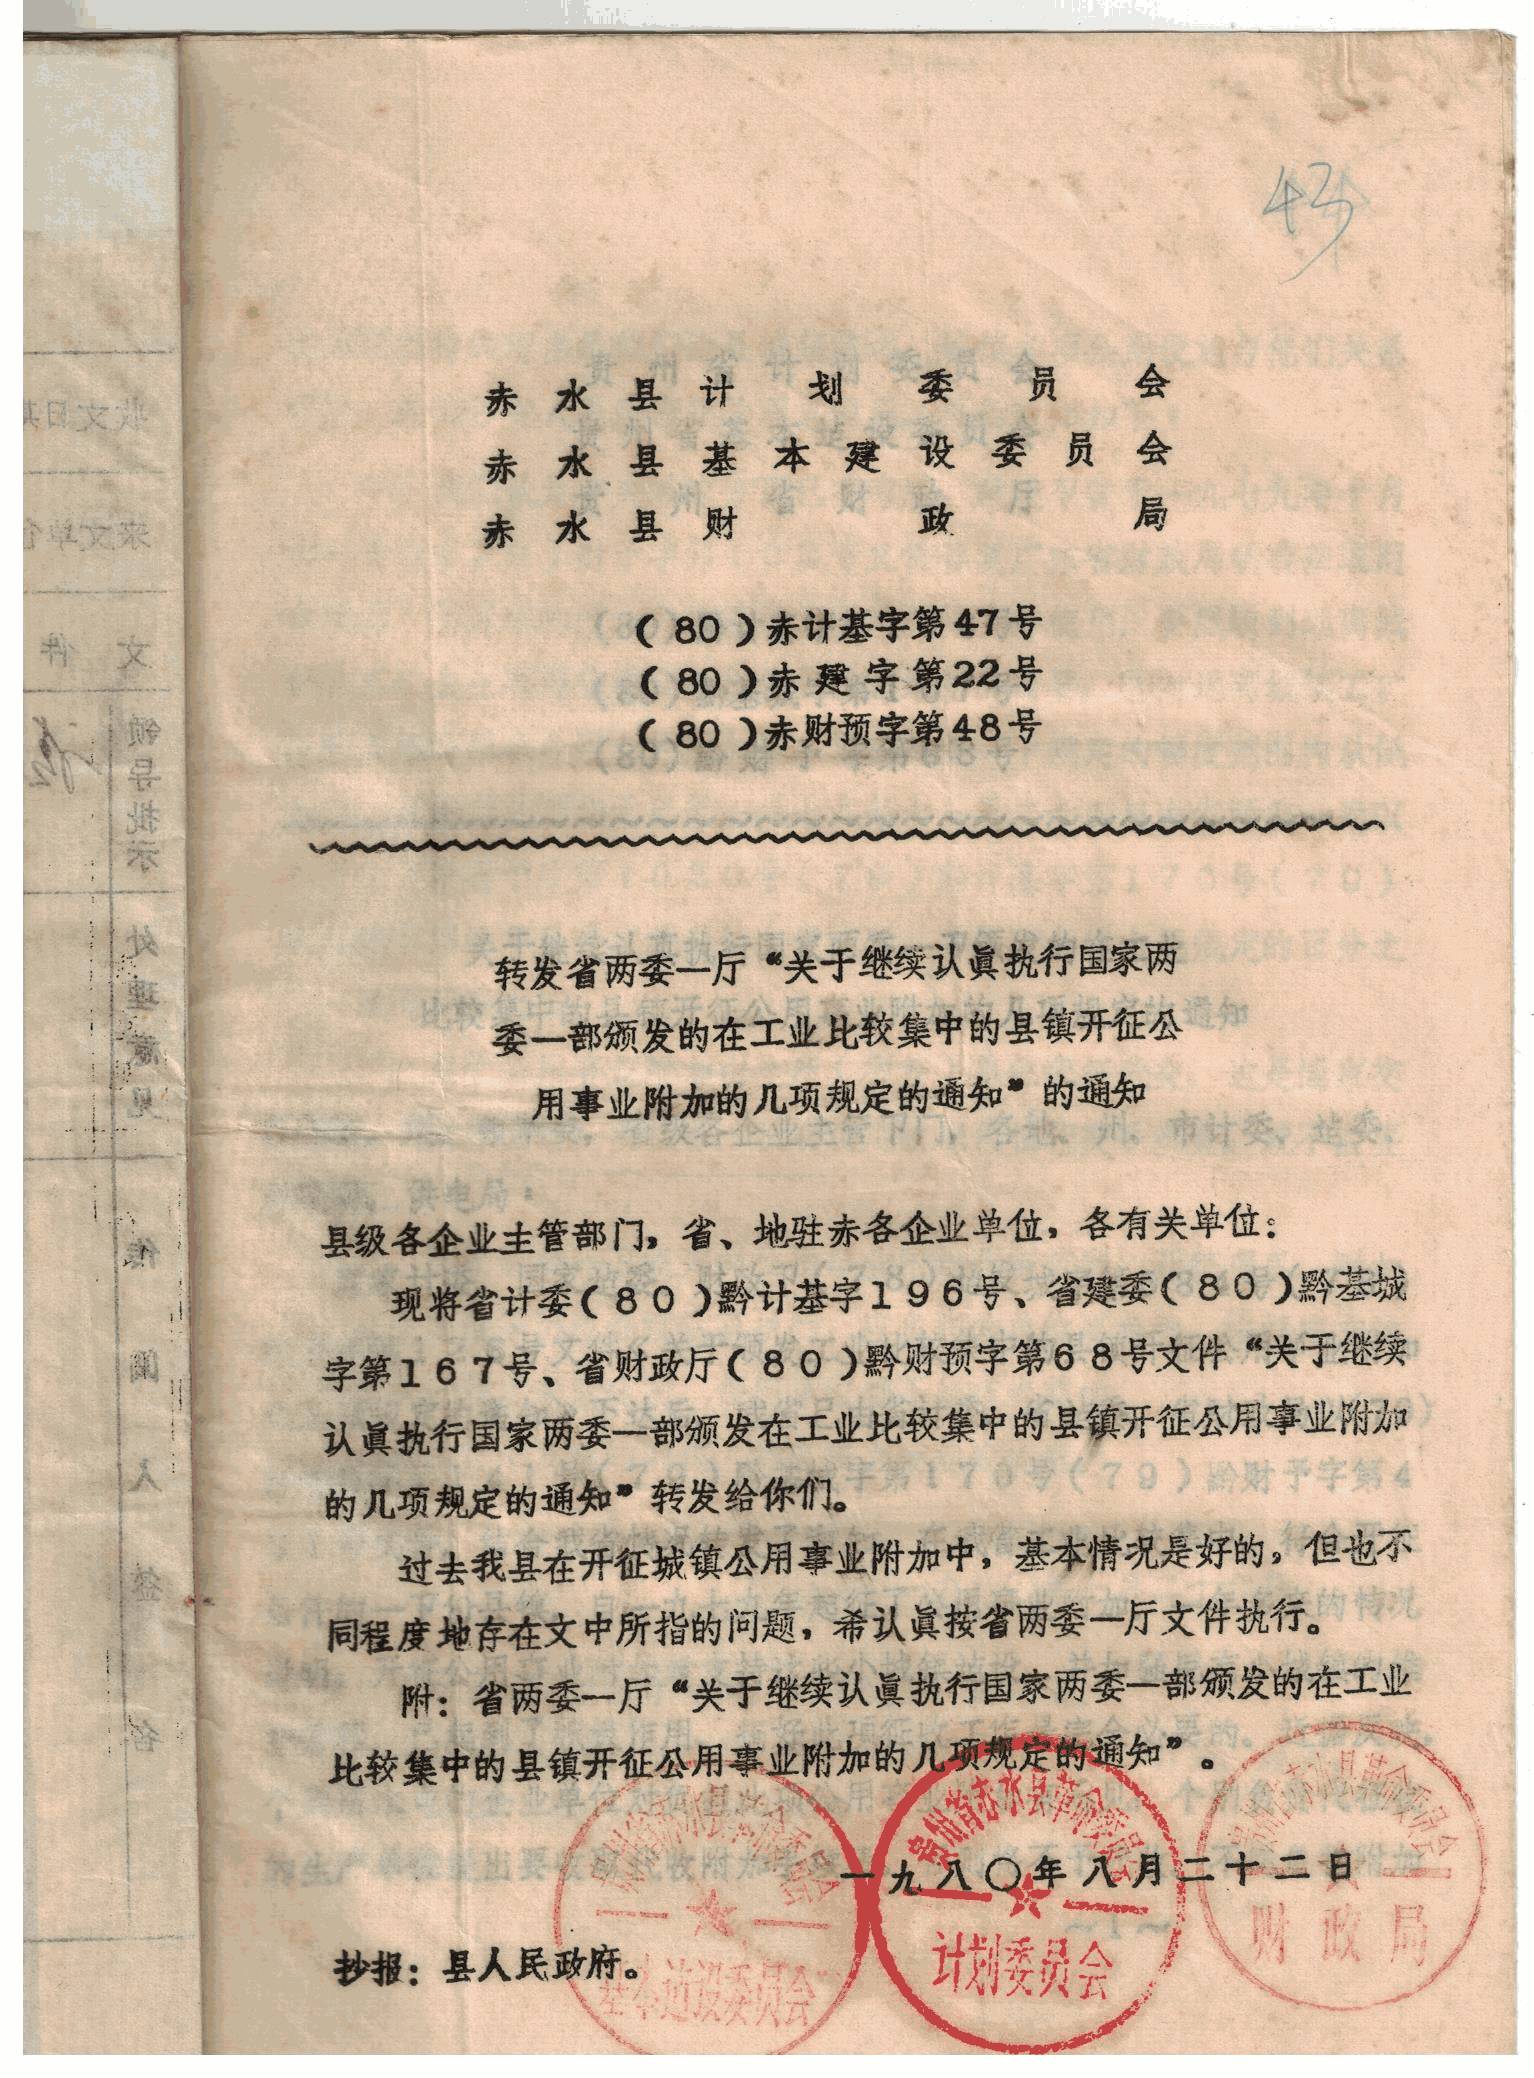 43
赤水县计划委员会
赤水县基本建设委员会
赤水县财政局
(80)赤计基字第47号
(80)赤建字第22号
(80)赤财预字第48号
转发省两委一厅“关于继续认眞执行国家两
委一部颁发的在工业比较集中的县镇开征公
用事业附加的几项规定的通知”的通知
县级各企业主管部门，省、地驻赤各企业单位，各有关单位：
现将省计委(80)黔计基字196号、省建委(80)黔基城
字第167号、省财政厅(80)黔财预字第68号文件“关于继续
认眞执行国家两委一部颁发在工业比较集中的县镇开征公用事业附加
的几项规定的通知”转发给你们。
过去我县在开征城镇公用事业附加中，基本情况是好的，但也不
同程度地存在文中所指的问题，希认眞按省两委一厅文件执行。
附：省两委一厅“关于继续认眞执行国家两委一部颁发的在工业
比较集中的县镇开征公用事业附加的几项规定的通知”。
一九八〇年八月二十二日
抄报：县人民政府。
贵州省赤水县革命委员会
基本建设委员会
贵州省赤水县革命委员会
计划委员会
贵州省赤水县革命委员会
财政局